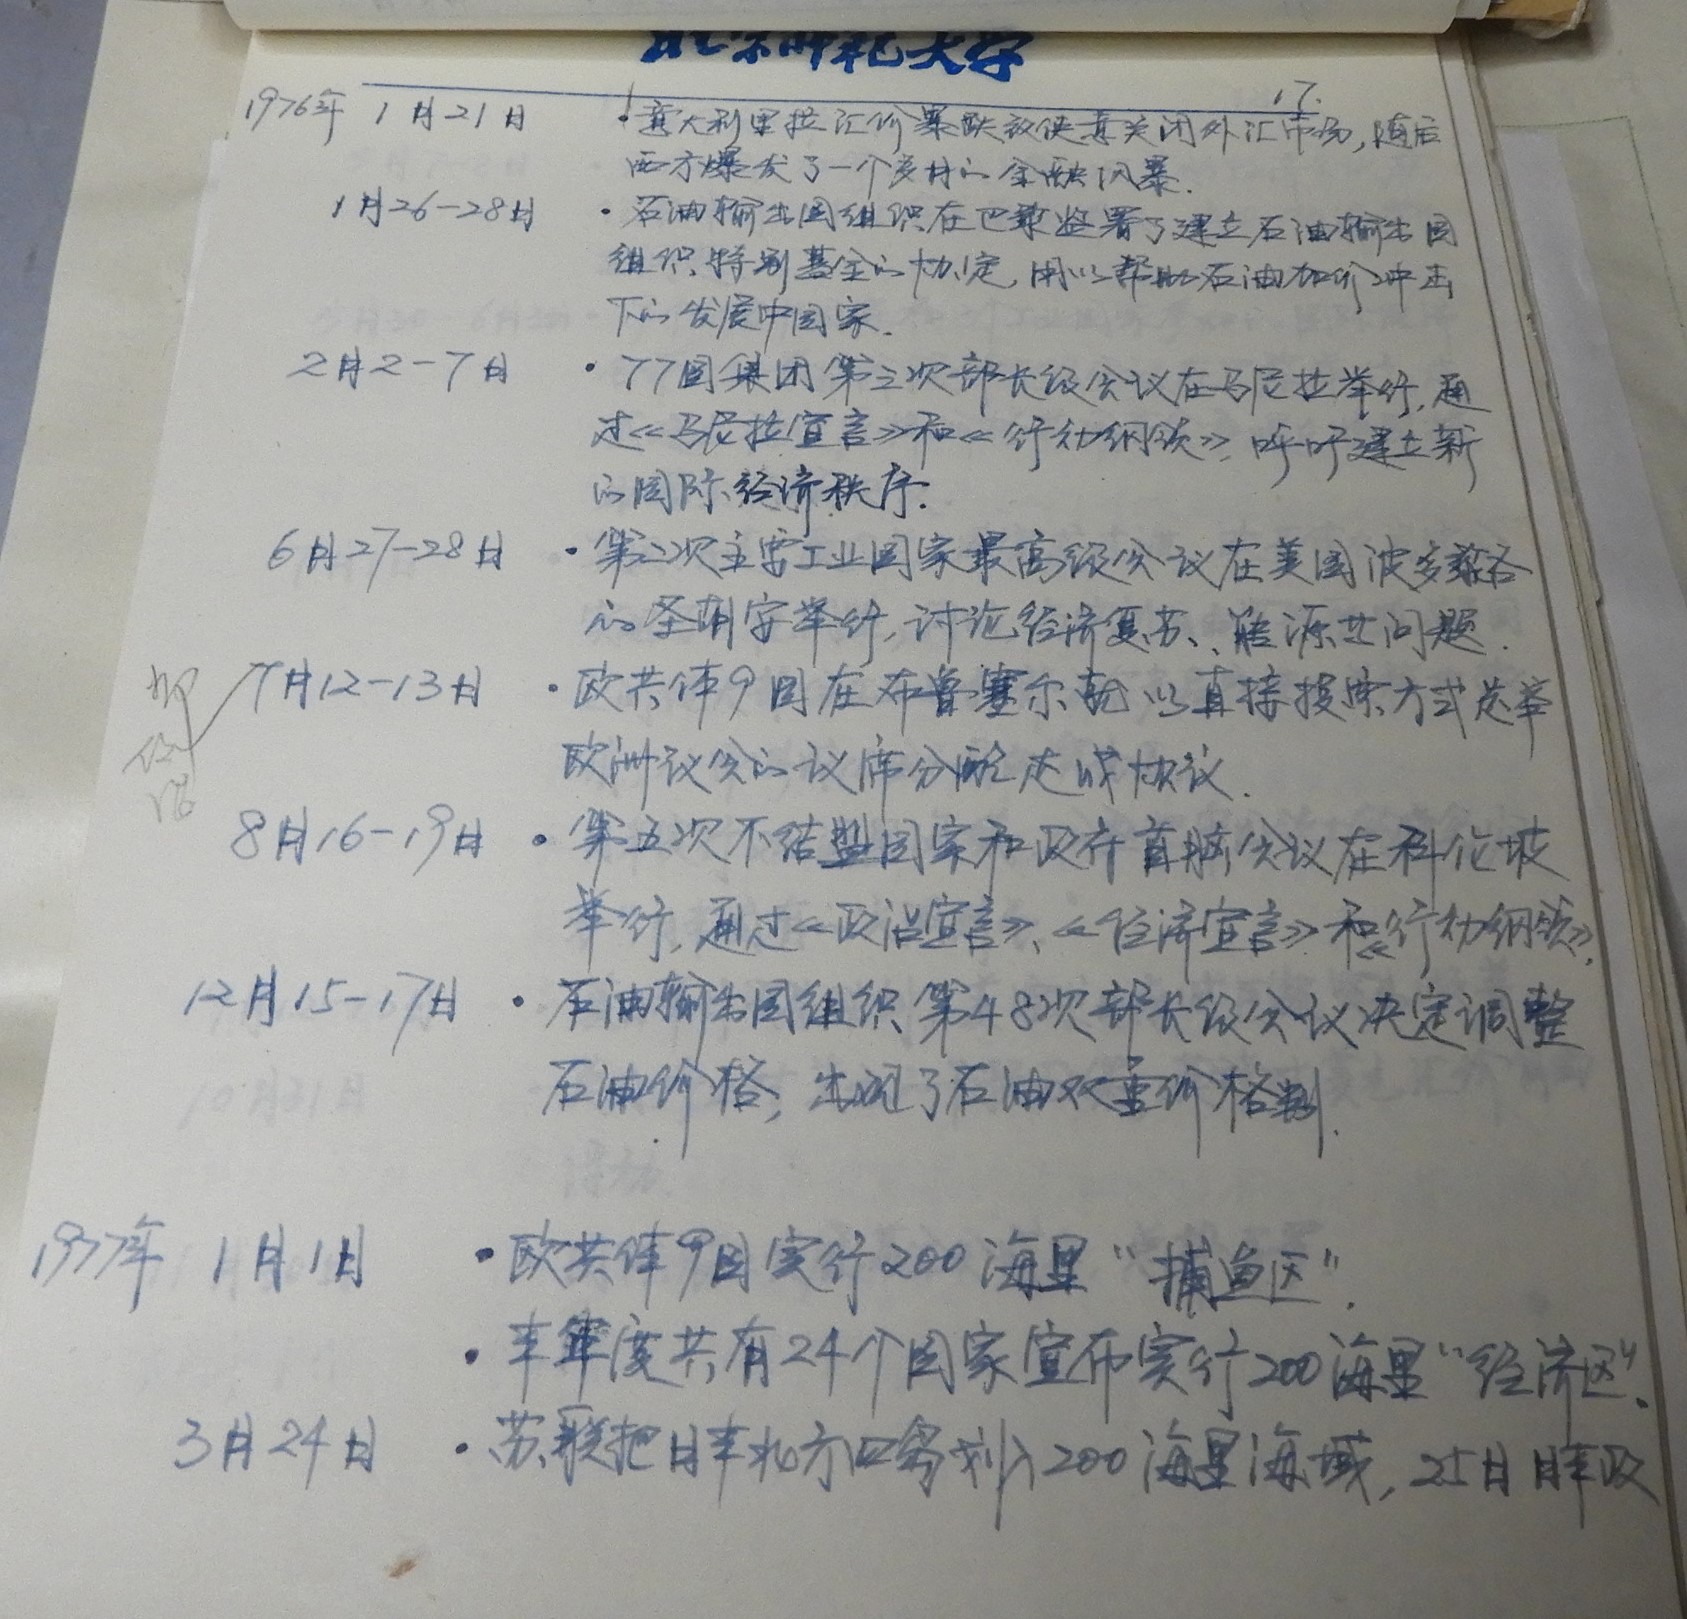 北京师范大学
17.
1976年 1月21日 · 意大利里拉汇价暴跌致使意关闭外汇市场,随后
西方爆发了一个多月的金融风暴.
1月26-28日 · 石油输出国组织在巴黎签署了建立石油输出国
组织特别基金的协定,用以帮助石油加价冲击
下的发展中国家.
2月2-7日 · 77国集团第三次部长级会议在马尼拉举行,通
过《马尼拉宣言》和《行动纲领》,呼吁建立新
的国际经济秩序.
6月27-28日 · 第二次主要工业国家最高级会议在美国波多黎各
的圣胡安举行,讨论经济复苏、能源廿问题.
7月12-13日 · 欧共体9国在布鲁塞尔就以直接投票方式选举
欧洲议会的议席分配达成协议.
8月16-19日 · 第五次不结盟国家和政府首脑会议在科伦坡
举行,通过《政治宣言》、《经济宣言》和《行动纲领》.
12月15-17日 · 石油输出国组织第48次部长级会议决定调整
石油价格,出现了石油双重价格制.
1977年 1月1日 · 欧共体9国实行200海里“捕鱼区”.
· 本年度共有24个国家宣布实行200海里“经济区”.
3月24日 · 苏联把日本北方四岛划入200海里海域,25日日本政